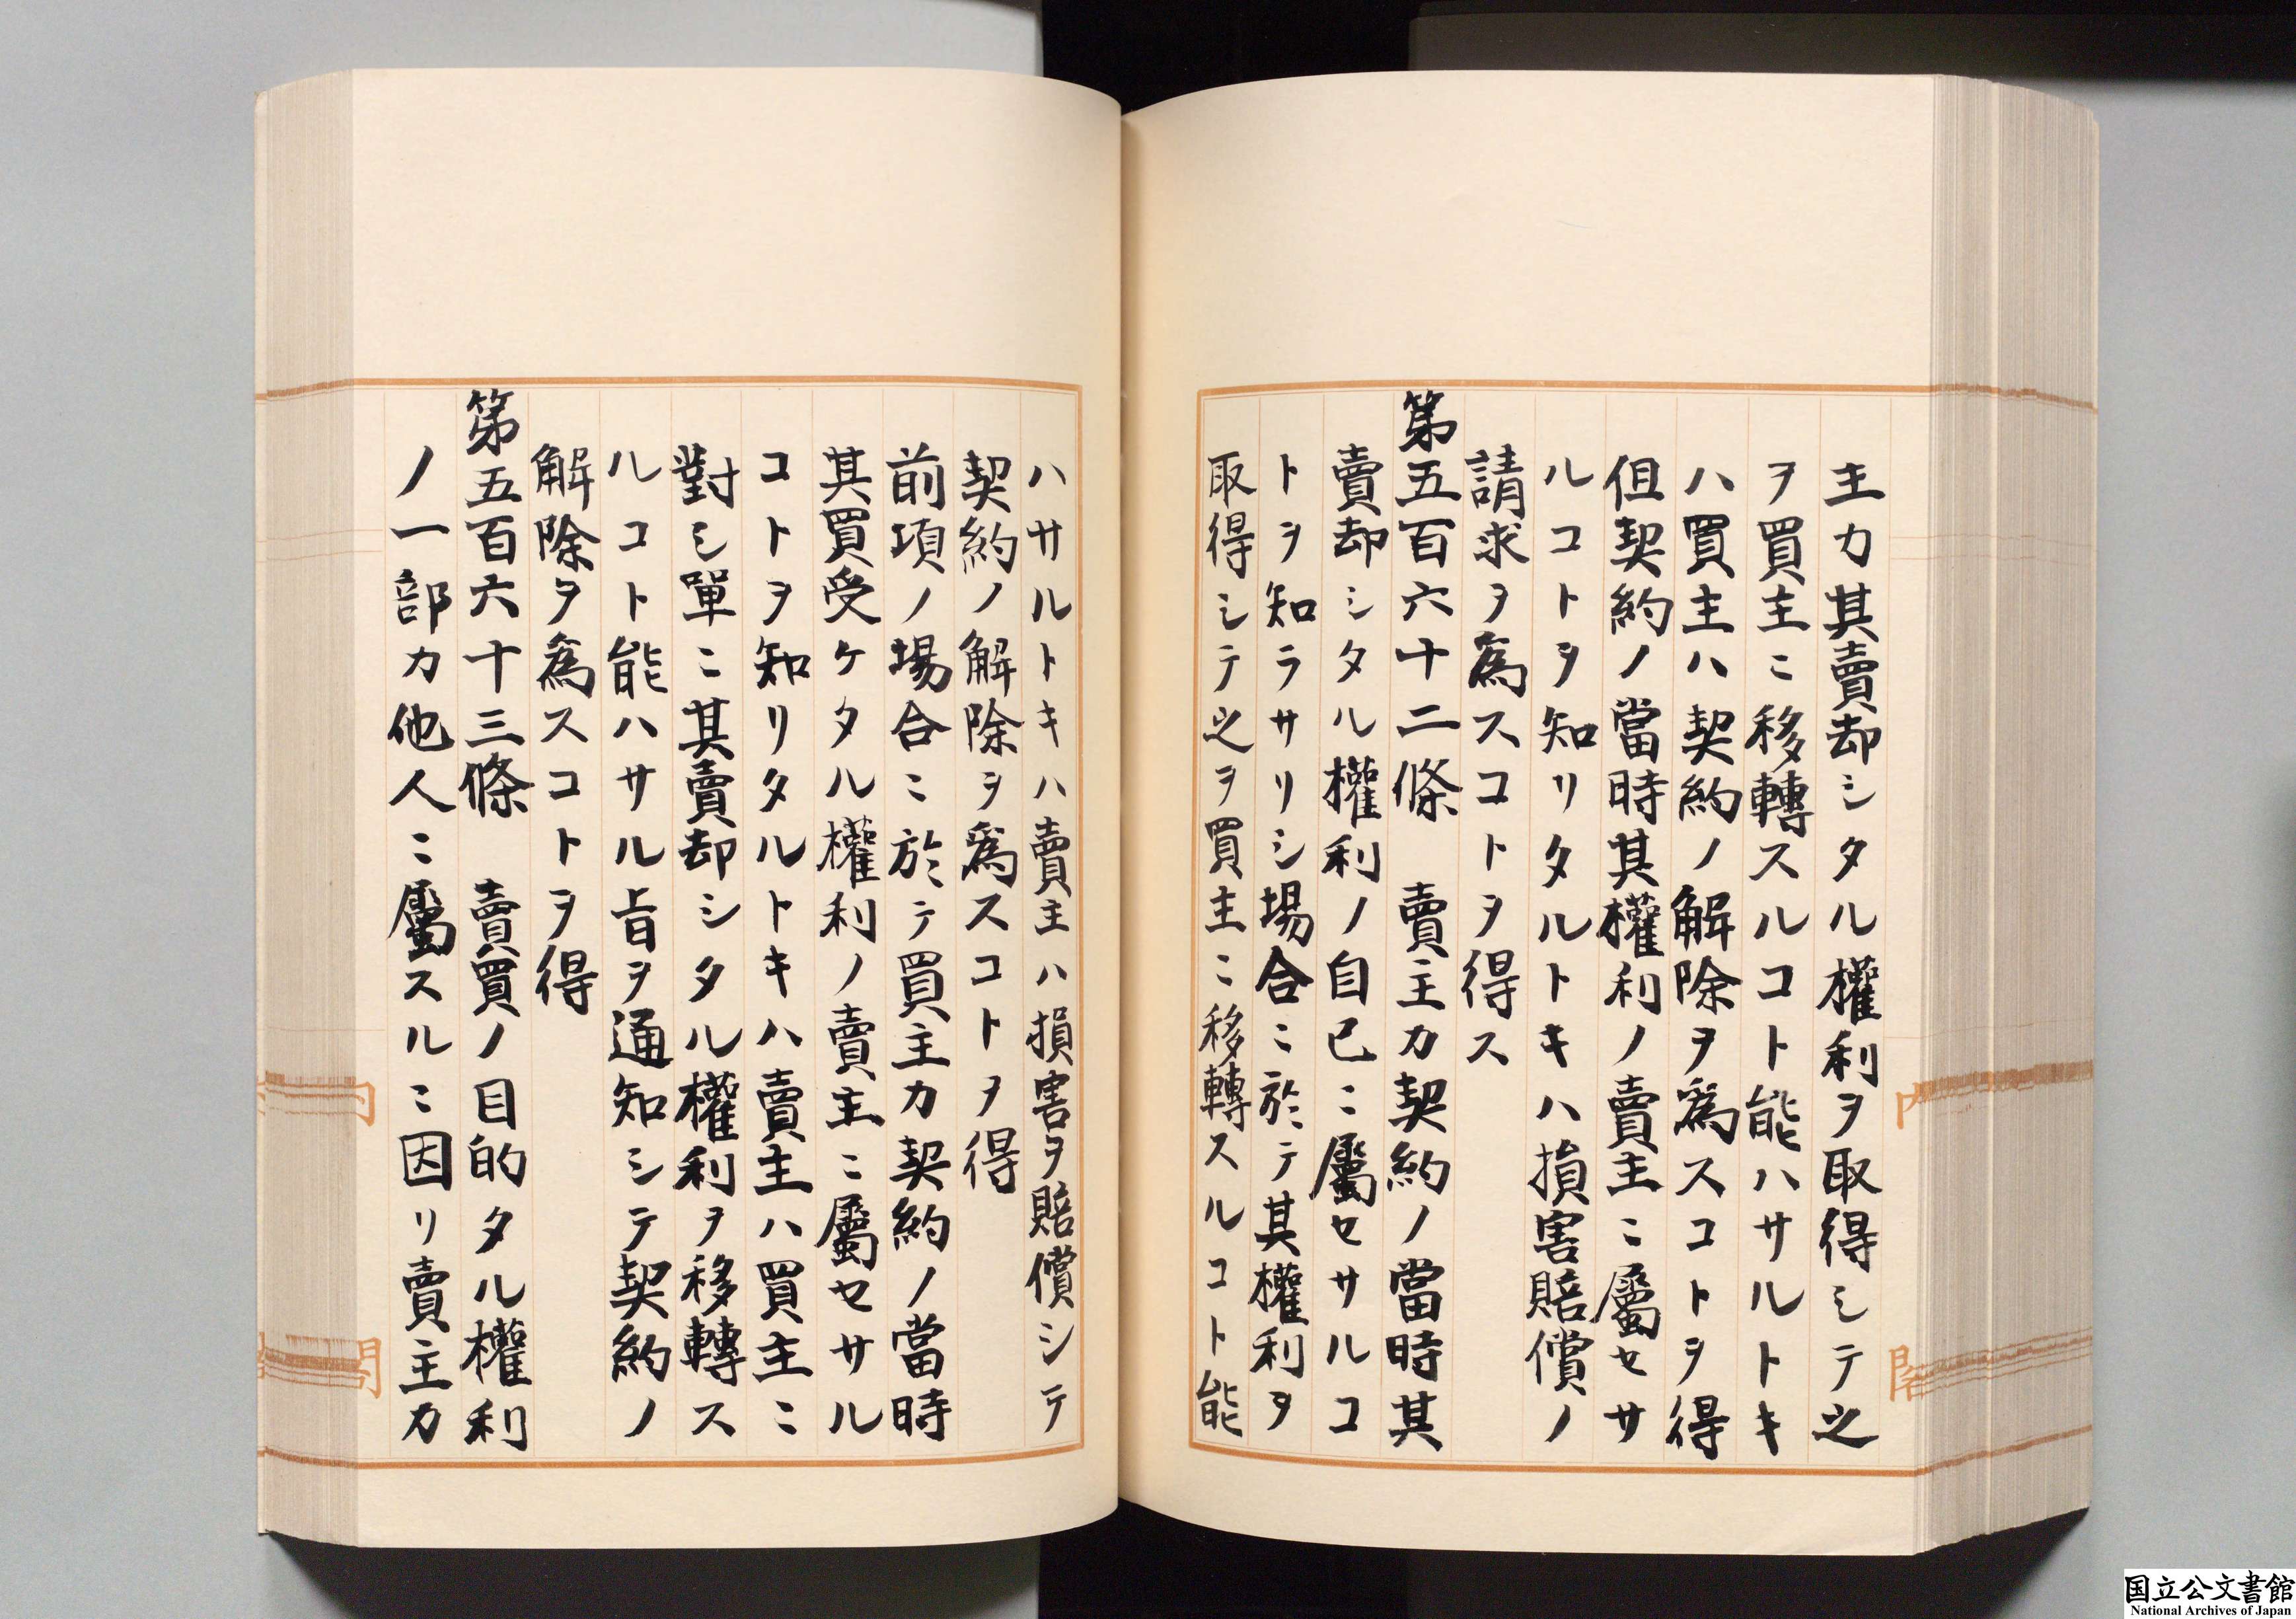 主カ其賣却シタル權利ヲ取得シテ之
ヲ買主ニ移轉スルコト能ハサルトキ
ハ買主ハ契約ノ解除ヲ爲スコトヲ得
但契約ノ當時其權利ノ賣主ニ屬セサ
ルコトヲ知リタルトキハ損害賠償ノ
請求ヲ爲スコトヲ得ス
第五百六十二條　賣主カ契約ノ當時其
賣却シタル權利ノ自己ニ屬セサルコ
トヲ知ラサリシ場合ニ於テ其權利ヲ
取得シテ之ヲ買主ニ移轉スルコト能
ハサルトキハ賣主ハ損害ヲ賠償シテ
契約ノ解除ヲ爲スコトヲ得
前項ノ場合ニ於テ買主カ契約ノ當時
其買受ケタル權利ノ賣主ニ屬セサル
コトヲ知リタルトキハ賣主ハ買主ニ
對シ單ニ其賣却シタル權利ヲ移轉ス
ルコト能ハサル旨ヲ通知シテ契約ノ
解除ヲ爲スコトヲ得
第五百六十三條　賣買ノ目的タル權利
ノ一部カ他人ニ屬スルニ因リ賣主カ
国立公文書館
National Archives of Japan